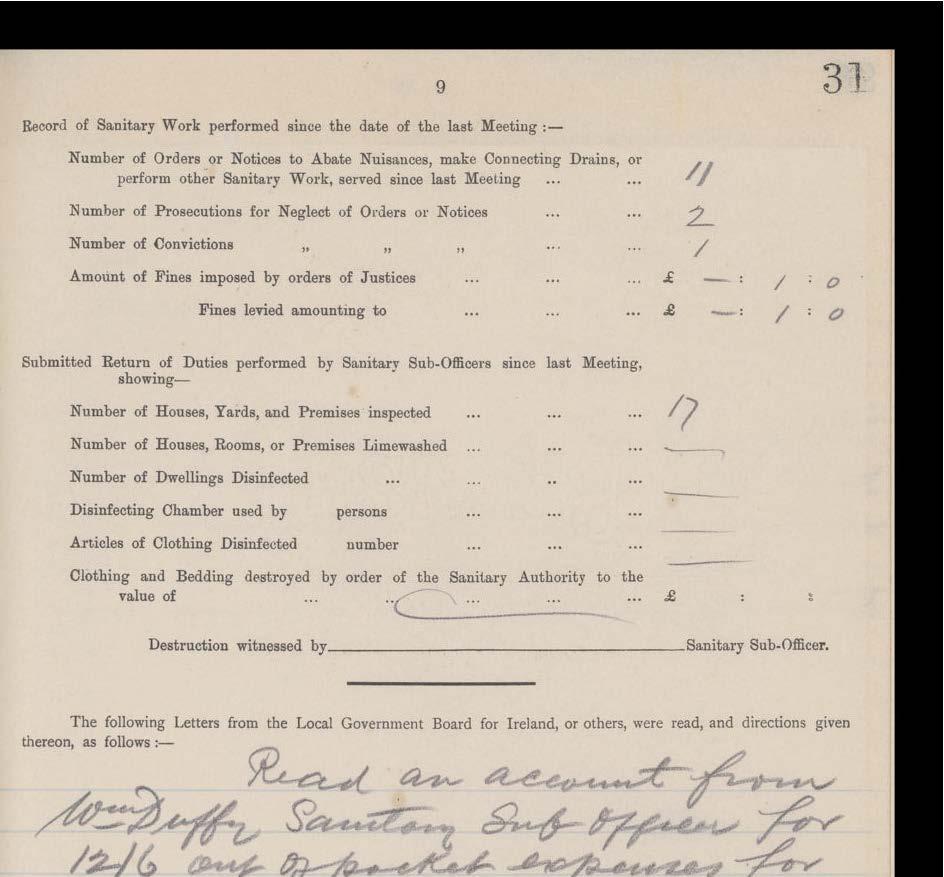 9
31
Record of Sanitary Work performed since the date of the last Meeting :—
Number of Orders or Notices to Abate Nuisances, make Connecting Drains, or
perform other Sanitary Work, served since last Meeting ... ... 11
Number of Prosecutions for Neglect of Orders or Notices ... ... 2
Number of Convictions „ „ „ ... ... 1
Amount of Fines imposed by orders of Justices ... ... ... £ — : 1 : 0
Fines levied amounting to ... ... ... £ — : 1 : 0
Submitted Return of Duties performed by Sanitary Sub-Officers since last Meeting,
showing—
Number of Houses, Yards, and Premises inspected ... ... ... 17
Number of Houses, Rooms, or Premises Limewashed ... ... ... —
Number of Dwellings Disinfected ... ... .. ... —
Disinfecting Chamber used by persons ... ... ... —
Articles of Clothing Disinfected number ... ... ... —
Clothing and Bedding destroyed by order of the Sanitary Authority to the
value of ... ... ... ... ... £ : :
Destruction witnessed by____________Sanitary Sub-Officer.
The following Letters from the Local Government Board for Ireland, or others, were read, and directions given
thereon, as follows :—
Read an account from
Wm Duffy Sanitary Sub Officer for
12/6 out of pocket expenses for